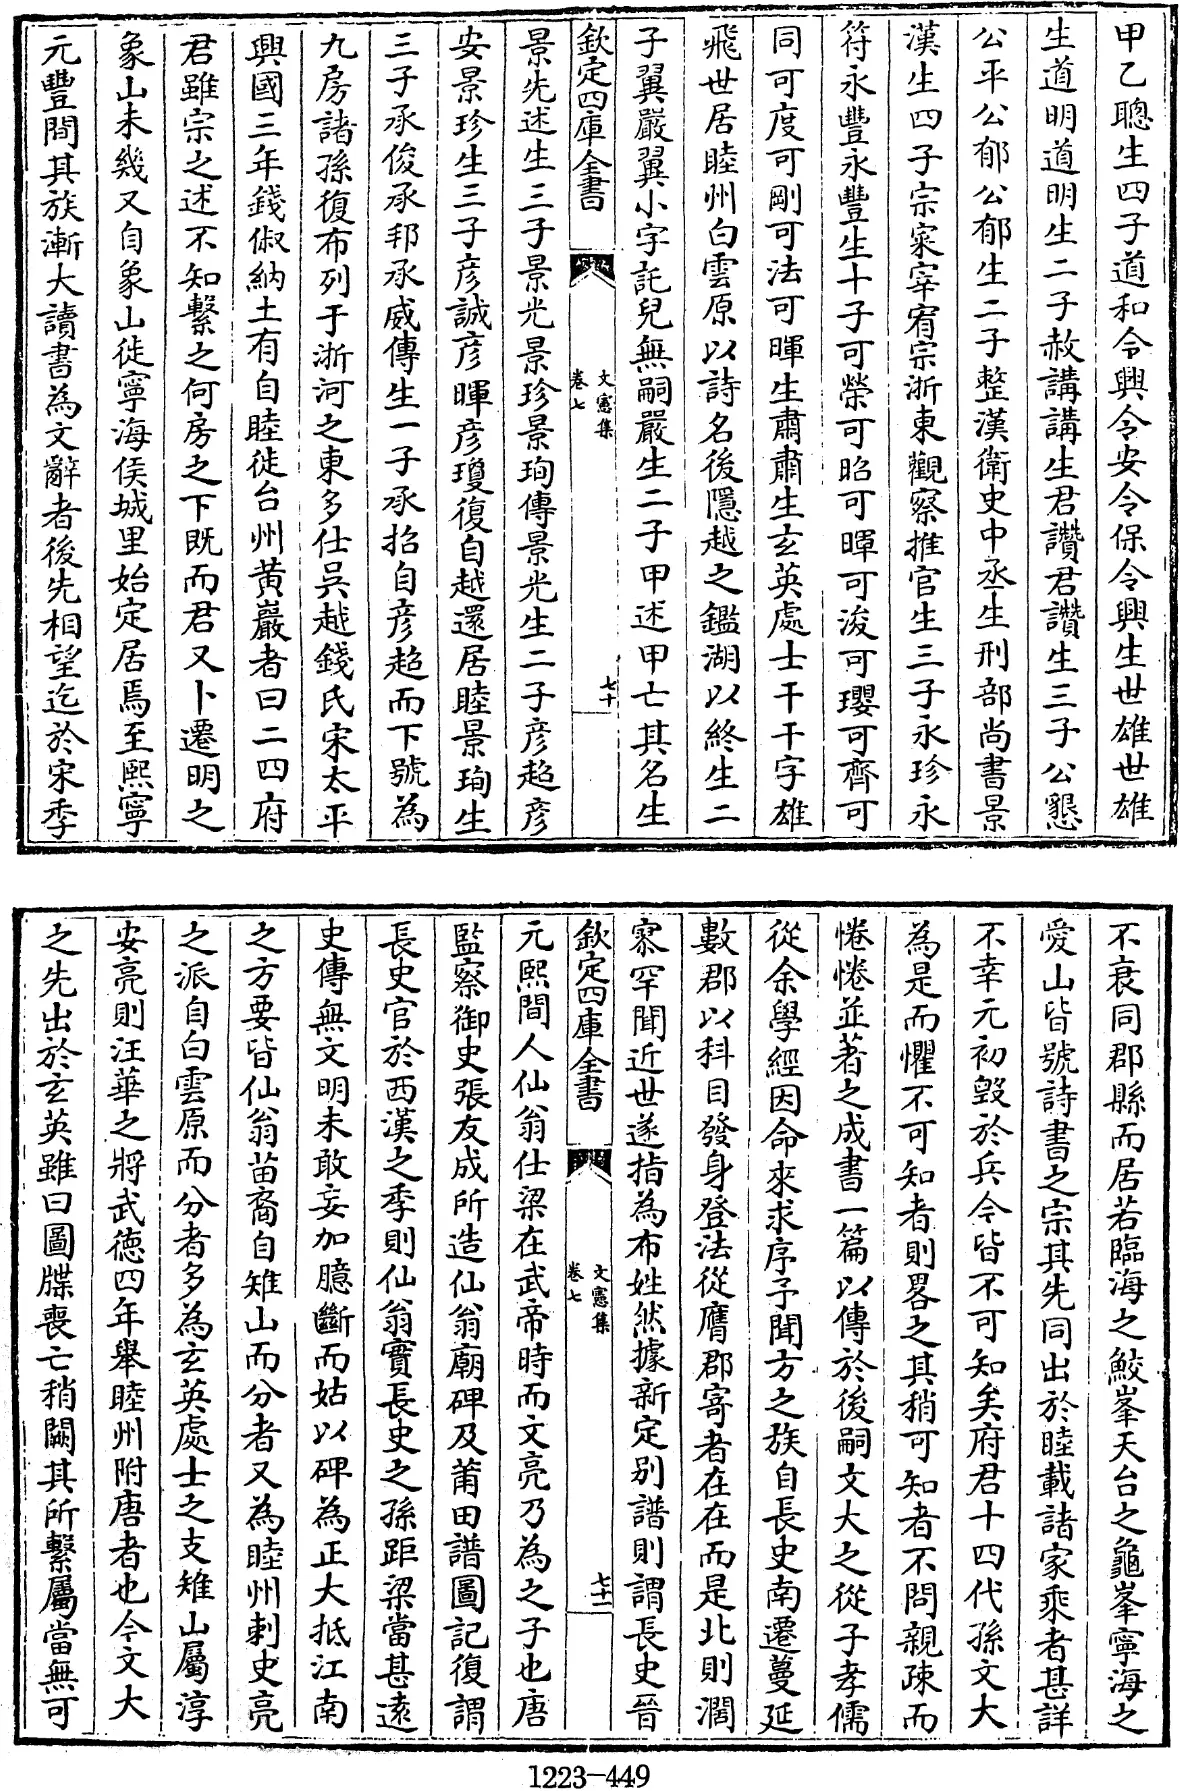 甲乙聰生四子道和令興令安令保令興生世雄世雄
生道明道明生二子赦講講生君讚君讚生三子公懇
公平公郁公郁生二子整漢衛史中丞生刑部尚書景
漢生四子宗寀宰宥宗浙東觀察推官生三子永珍永
符永豐永豐生十子可榮可昭可暉可浚可瓔可齊可
同可度可剛可法可暉生肅肅生玄英處士干干字雄
飛世居睦州白雲原以詩名後隱越之鑑湖以終生二
子翼嚴翼小字託兒無嗣嚴生二子甲述甲亡其名生
欽定四庫全書
文憲集
卷七
七十
景先述生三子景光景珍景珣傳景光生二子彦超彦
安景珍生三子彦誠彦暉彦瓊復自越還居睦景珣生
三子承俊承邦承威傳生一子承招自彦超而下號為
九房諸孫復布列于浙河之東多仕吳越錢氏宋太平
興國三年錢俶納土有自睦徙台州黄巖者曰二四府
君雖宗之述不知繫之何房之下既而君又卜遷明之
象山未幾又自象山徙寧海侯城里始定居焉至熙寧
元豐間其族漸大讀書為文辭者後先相望迄於宋季
不衰同郡縣而居若臨海之鮫峯天台之龜峯寧海之
愛山皆號詩書之宗其先同出於睦載諸家乘者甚詳
不幸元初毁於兵今皆不可知矣府君十四代孫文大
為是而懼不可知者則畧之其稍可知者不問親疎而
惓惓並著之成書一篇以傳於後嗣文大之從子孝儒
從余學經因命來求序予聞方之族自長史南遷蔓延
數郡以科目發身登法從膺郡寄者在在而是北則濶
寡罕聞近世遂指為布姓然據新定别譜則謂長史晉
欽定四庫全書
文憲集
卷七
七十一
元熙間人仙翁仕梁在武帝時而文亮乃為之子也唐
監察御史張友成所造仙翁廟碑及莆田譜圖記復謂
長史官於西漢之季則仙翁實長史之孫距梁當甚遠
史傳無文明未敢妄加臆斷而姑以碑為正大抵江南
之方要皆仙翁苗裔自雉山而分者又為睦州刺史亮
之派自白雲原而分者多為玄英處士之支雉山屬淳
安亮則汪華之將武徳四年舉睦州附唐者也今文大
之先出於玄英雖曰圖牒喪亡稍闕其所繫屬當無可
1223—449